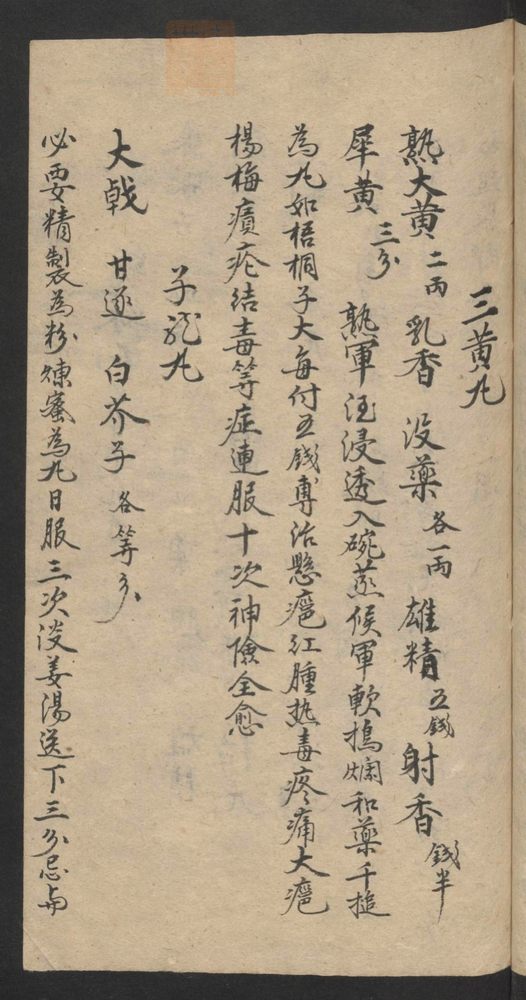 三黄丸
熟大黄二両 乳香 没藥各一両 雄精五錢 射香錢半
犀黄三分 熟軍酒浸透入碗蒸候軍軟搗爛和藥千搥
為丸如梧桐子大每付五錢專治懸癰紅腫热毒疼痛大癰
楊梅瘡結毒等症連服十次神險全愈
子龍丸
大戟 甘遂 白芥子各等分
必要精製為粉煉蜜為丸日服三次淡姜湯送下三分忌与